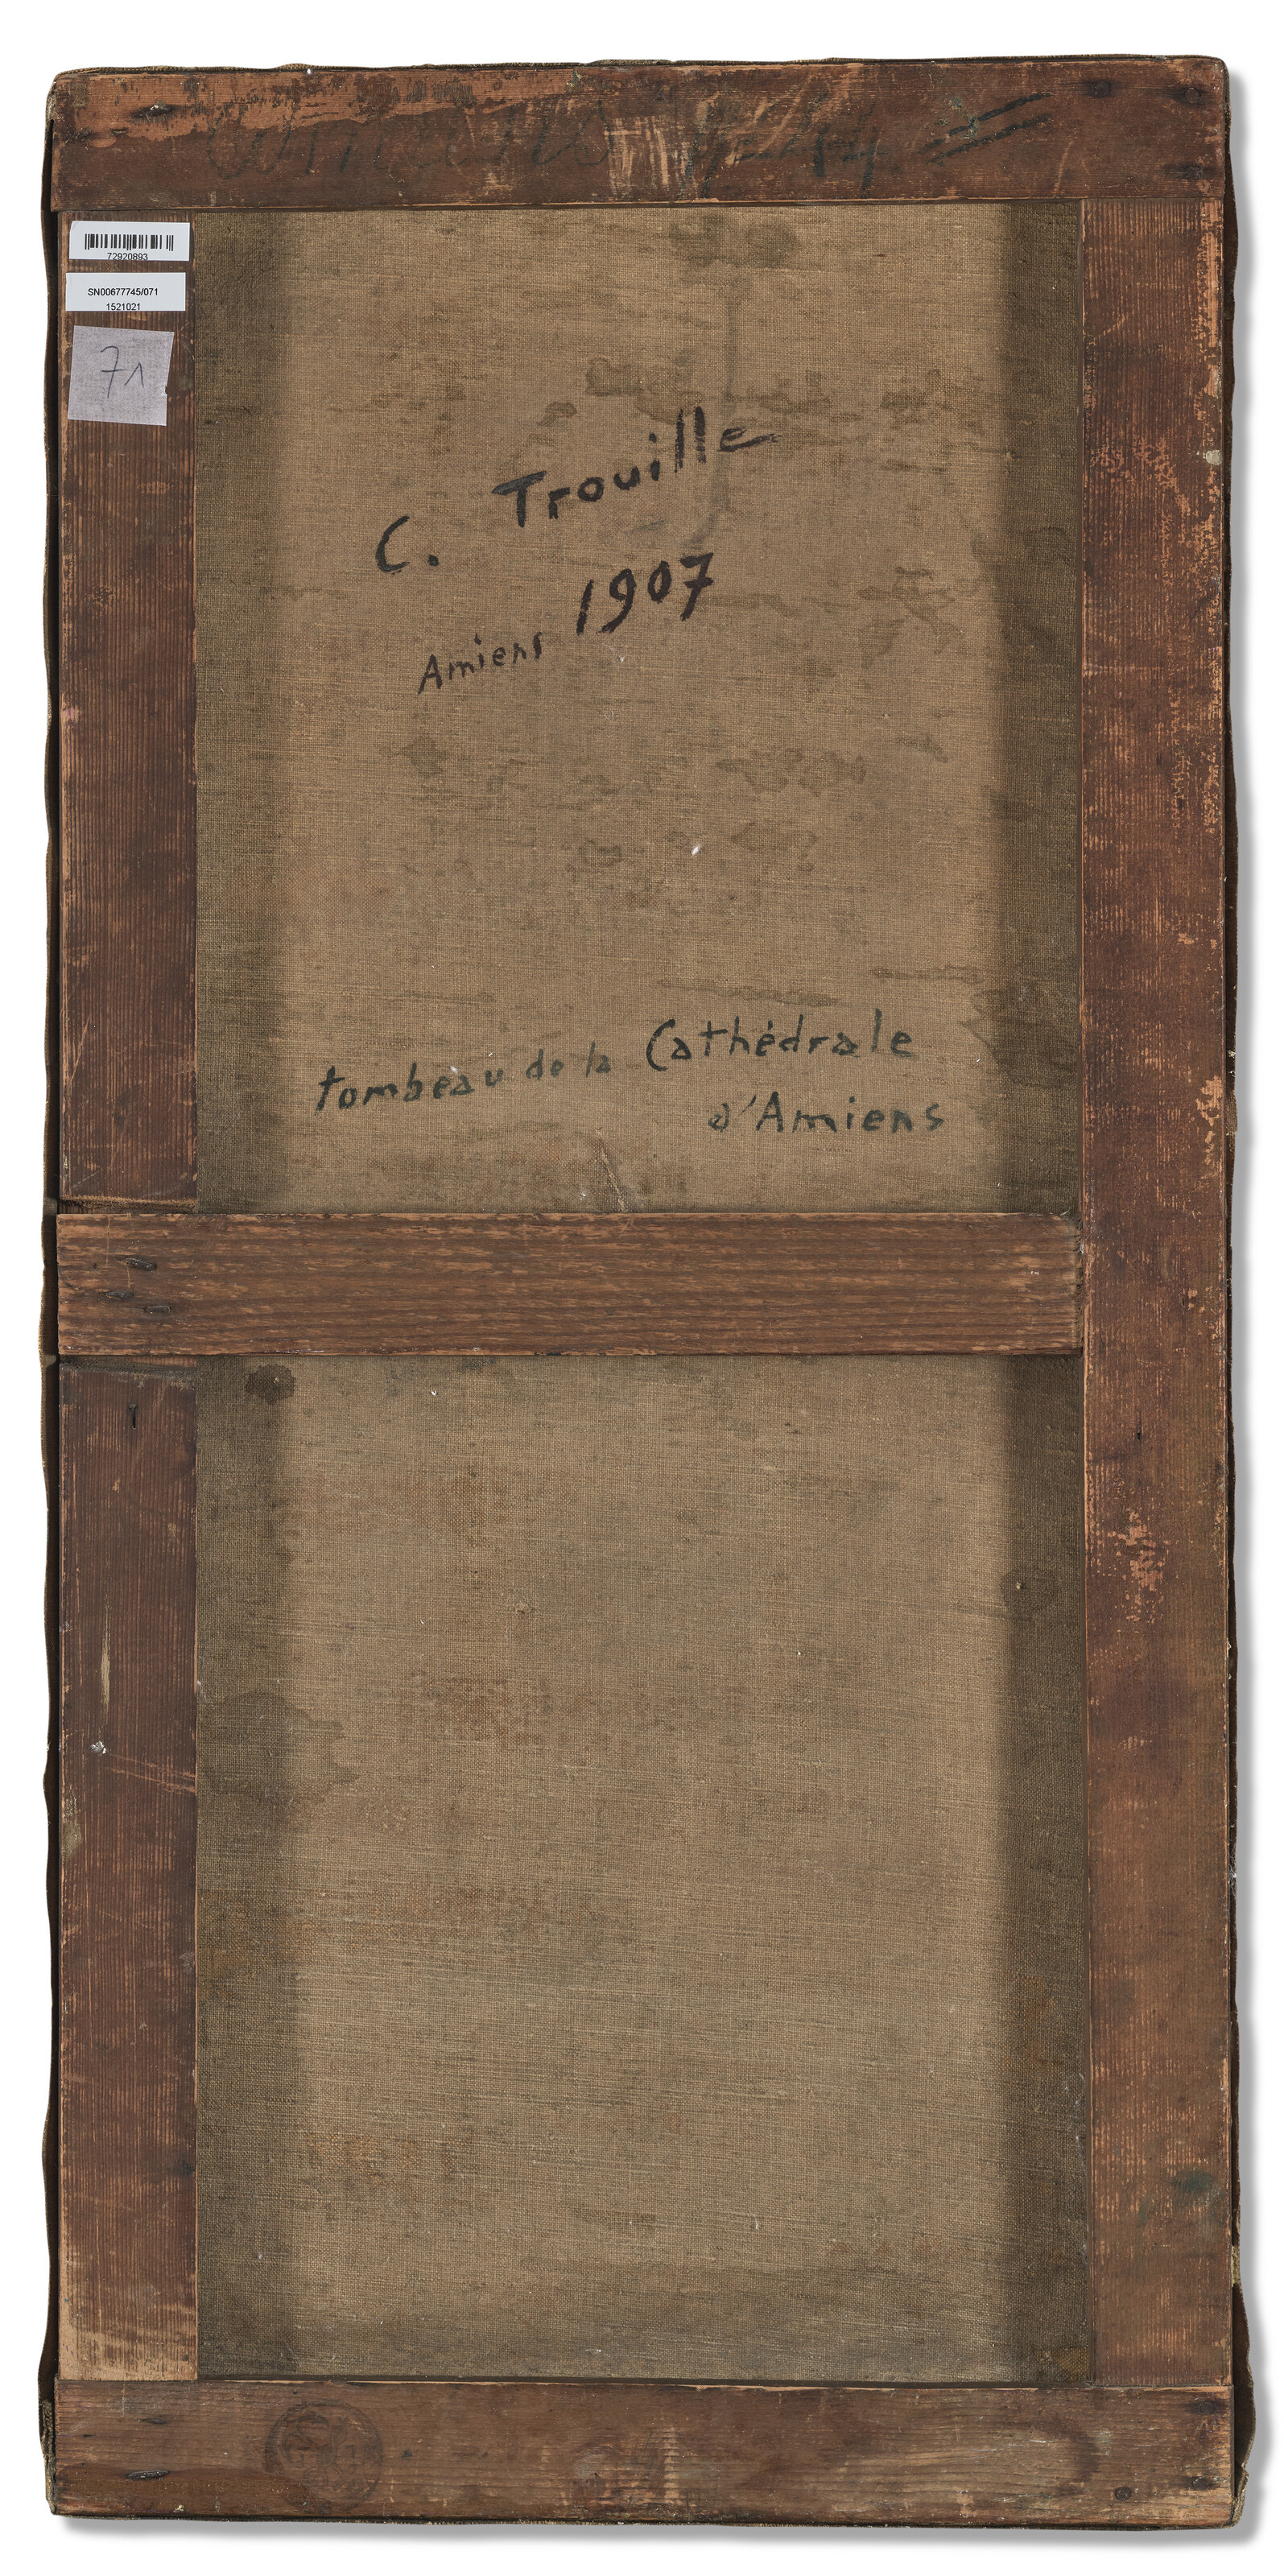 72920893
SN00677745/071
1521021
71
C. Trouille
1907
Amiens
tombeau de la Cathédrale
d'Amiens